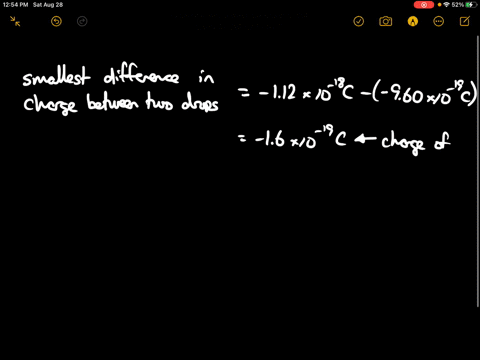 12:54 PM Sat Aug 28
52%
smallest difference in
charge between two drops
= -1.12 × 10⁻¹⁸C - (-9.60 × 10⁻¹⁹C)
= -1.6 × 10⁻¹⁹ C ← charge of